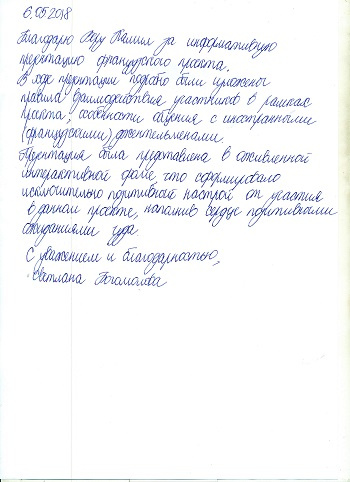 6.05.2018
Благодарю Хеду Тамилл за информативную
презентацию французского проекта.
В ходе презентации подробно были изложены
правила взаимодействия участников в рамках
проекта, особенности общения с иностранными
(французскими) джентельменами.
Презентация была представлена в оживленной
интерактивной форме, что сформировало
исключительно позитивный настрой от участия
в данном проекте, наполнив сердце позитивными
ожиданиями чуда
С уважением и благодарностью,
Светлана Богомолова